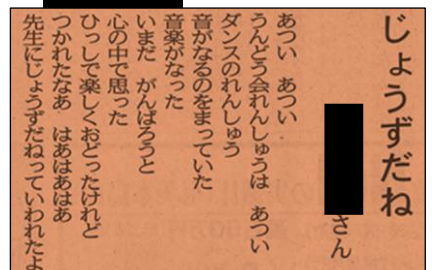 じょうずだね
さん
あつい　あつい
うんどう会れんしゅうは　あつい
ダンスのれんしゅう
音がなるのをまっていた
音楽がなった
いまだ　がんばろうと
心の中で思った
ひっしで楽しくおどったけれど
つかれたなあ　はあはあはあ
先生にじょうずだねっていわれたよ